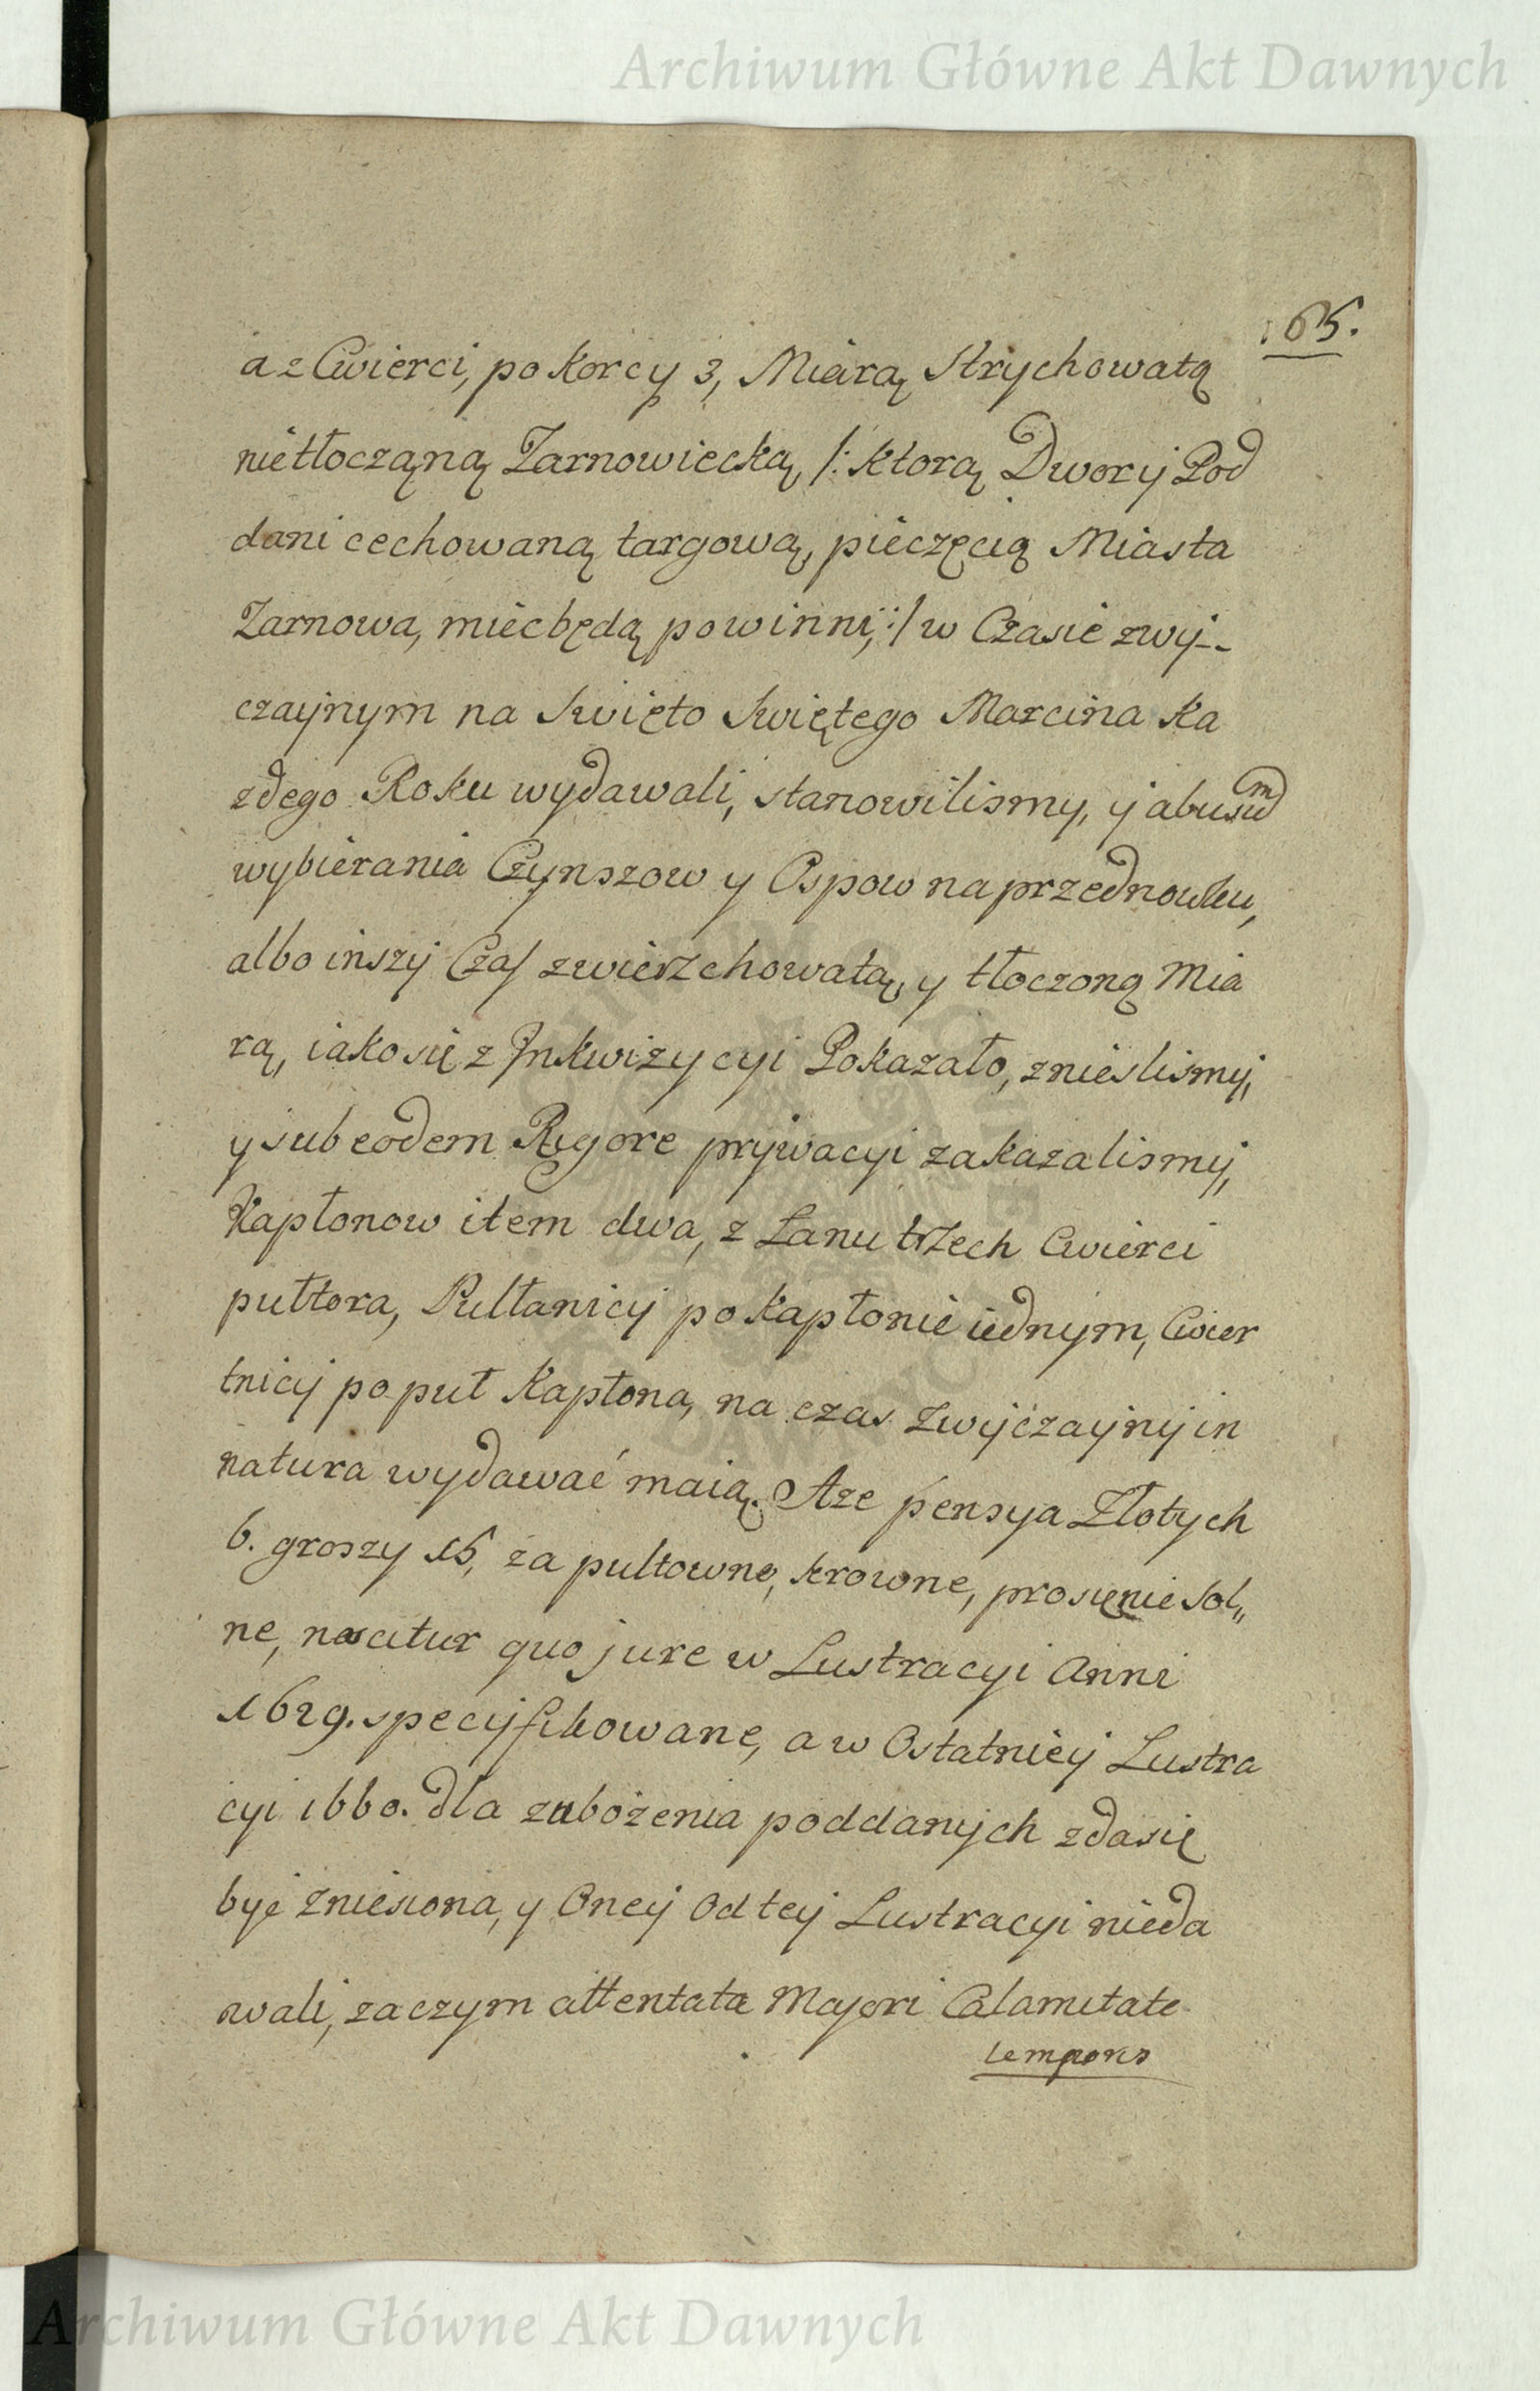 Archiwum Główne Akt Dawnych
165.
a z Cwierci, po Korcy 3, Miarą Strychowatą
nietłocząną Zarnowiecką, /: Ktorą Dwory Pod
dani cechowaną targową, pieczęcią Miasta
Zarnowa, miec będą powinni, :/ w Czasie zwy-
czaynym na Swięto Swiętego Marcina Ka
zdego Roku wydawali, stanowilismy, y abusum
wybierania Czynszow y Ospow na przednowku,
albo inszy Czas zwierzchowatą, y tłoczoną Mia
rą, iako się z Inkwizycyi Pokazało, znieslismy,
y sub eodem Rigore prywacyi zakazalismy,
Kapłonow item dwa, z Łanu trzech Cwierci
pułtora, Pułłanicy po Kapłonie iednym, Cwier
tnicy po puł Kapłona, na czas Zwyczayny in
natura wydawać maią. A że pensya Złotych
6. groszy 15, za pułtowne, krowne, prosięnie Sol„
ne, nescitur quo jure w Lustracyi Anni
1629. specyfikowane, a w Ostatniey Lustra
cyi 1660. dla zubożenia poddanych zda się
być Zniesiona, y Oney Od tey Lustracyi nieda
wali, zaczym attentata Majori Calamitate
temporis
Archiwum Główne Akt Dawnych